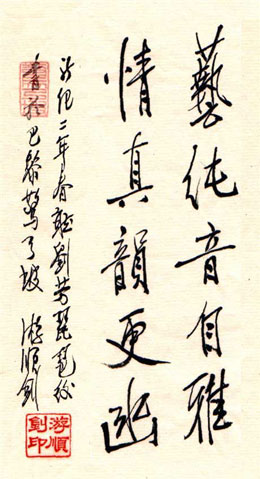 藝純音自雅
情真韻更幽
新紀二年春聽劉芳琵琶後
書於巴黎坡 游順釗
游順釗印